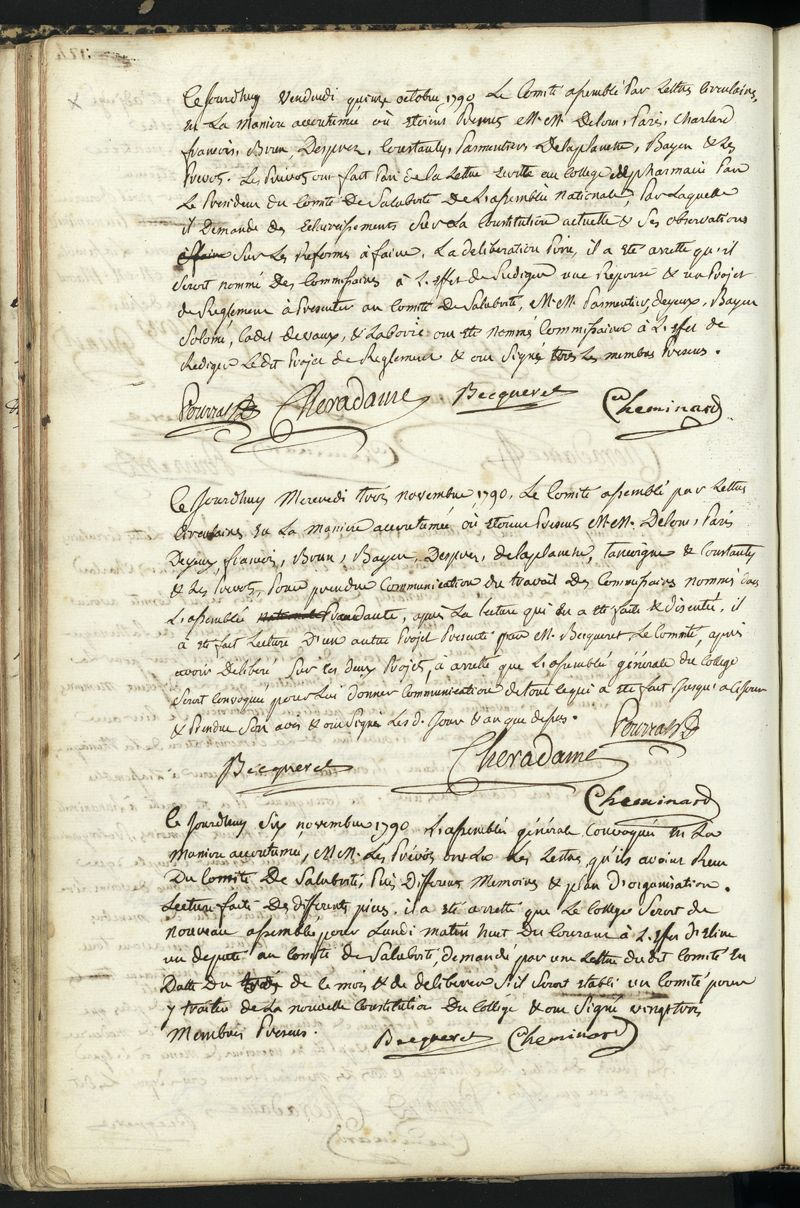 Ce Jourdhuy Vendredi quinze octobre 1790 Le Comité assemblé Par Lettres Circulaires,
en La Maniere accoutumée où etoient Presens M.M. Delons, Paris, Charlard
francois, Brun, Despres, Coustanty, Parmentier, Delaplanche, Bayen & les
Prevots. Les Prevots ont fait Part de la Lettre ecritte au College de pharmacie Par
Le President du Comité de Salubrité de L'assemblée Nationale, Par Laquelle
il Demande des Eclaircissements sur La Constitution actuelle & Ses observations
Sur Les Reformes à faire, La deliberation Prise, il a eté arretté qu'il
Seroit nommé Des Commissaires à L'effet de Rediger une Reponse & un Projet
de Reglement à Presenter au Comité de Salubrité, M.M. Parmentier, deyeux, Bayen
Solomé, Cadet devaux, & Laborie ont eté nommés Commissaires à L'effet de
Rediger Le dit Projet de Reglement & ont Signés tous Les membres Presens.
Pourrat Cheradame Becqueret Cheminard
Ce Jourdhuy Mercredi trois novembre 1790, Le Comité assemblé par Lettres
Circulaires en La Maniere accoutumée où etoient Presens M.M. Delons, Paris
Deyeux, francois, Brun, Bayen, Despres, delaplanche, tancoigne & Coustanty
& Les Prevots, Pour prendre Communication du travail des Commissaires nommés dans
L'assemblée Precedente, après La lecture qui en a eté faite & Discutée, il
à eté fait Lecture D'un autre Projet Presenté par M. Becqueret Le Comité, après
avoir deliberé Sur les deux Projets, à arretté que L'assemblée générale du College
Seroit Convoquée pour Lui donner Communication de tout ce qui a eté fait Jusqu'a ce Jour
& Prendre Son avis & ont Signés Les d. Jour & an que dessus. Pourrat
Becqueret Cheradame
Cheminard
Ce Jourdhuy Six novembre 1790 L'assemblée générale Convoquée en La
Maniere accoutumée, M.M. Les Prévots ont Lu Les Lettres, qu'ils avoient Recu
Du Comité De Salubrité, Puis Differens Memoires & plan D'organisation.
Lecture faite Des differents pieces, il a eté arretté que Le College Seroit de
nouveau assemblé pour Lundi matin huit Du Courant à L'effet d'Elire
un deputé au Comité de Salubrité, demandé par une Lettre du dit Comité En
Datte Du trois de le mois & de deliberer S'il Seroit etabli un Comité pour
y traiter de La nouvelle Constitution Du Collége & ont Signé vingt trois
Membres Presens. Becqueret Cheminard